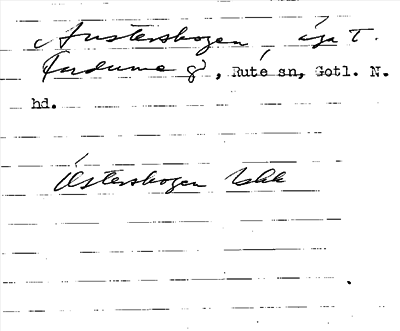 Austerskogen, äga T.
Fardume g, Rute sn, Gotl. N.
hd.
Österskogen Ebk